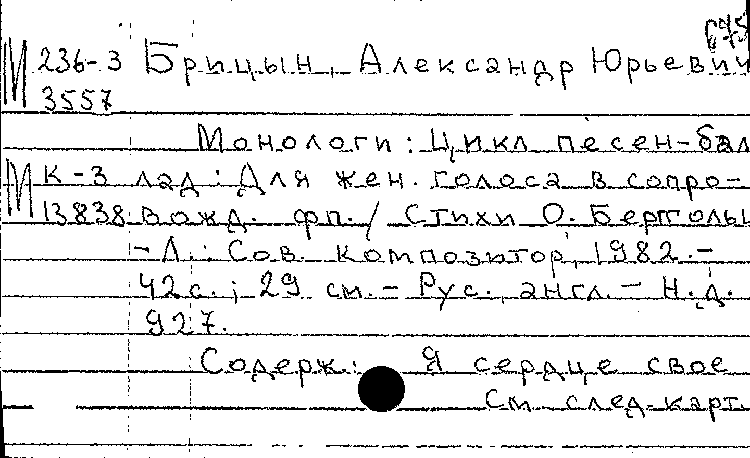 675
М 236-3 Брицын, Александр Юрьевич
3557
Монологи: Цикл песен-бал
М К-3 лад: Для жен. голоса в сопро-
13838 вожд. фп. / Стихи О. Берггольц
- Л.: Сов. композитор, 1982.-
42 с.; 29 см.- Рус., англ.- Н.д.
927.
Содерж.: Я сердце свое
См след.карт.